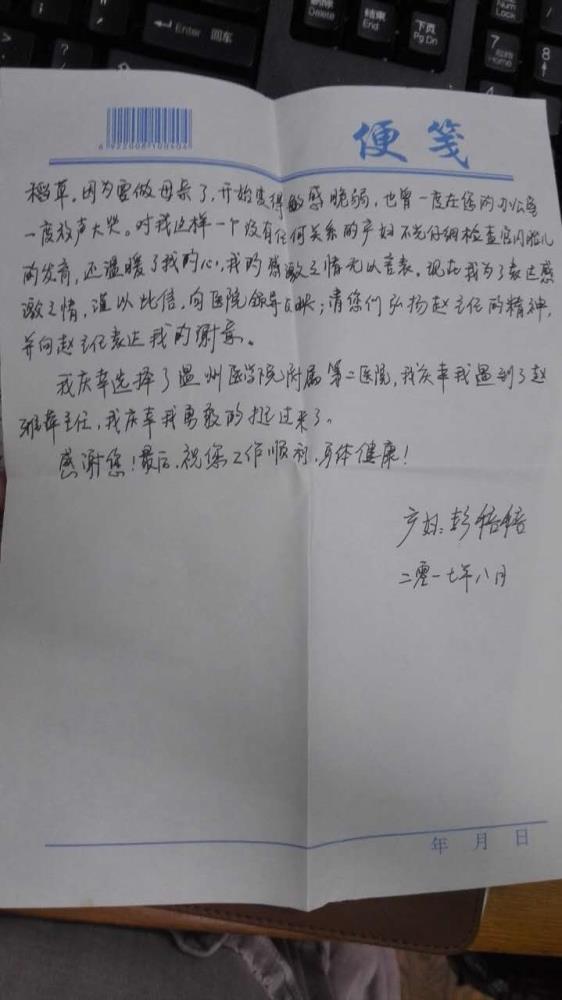 Delete
删除
End
结束
Pg Dn
下页
Num
Lock
7
Home
8
Enter 回车
6 922006 100404
便笺
稻草。因为要做母亲了,开始变得敏感脆弱,也曾一度在您的办公室
一度放声大哭。对我这样一个没有任何关系的产妇不光仔细检查宫内胎儿
的发育,还温暖了我的心,我的感激之情无以言表。现在我为了表达感
激之情,谨以此信,向医院领导反映;请您们弘扬赵主任的精神,
并向赵主任表达我的谢意。
我庆幸选择了温州医学院附属第二医院,我庆幸我遇到了赵
雅萍主任,我庆幸我勇敢的挺过来了。
感谢您!最后,祝您工作顺利,身体健康!
产妇:彭倍倍
二零一七年八月
年 月 日